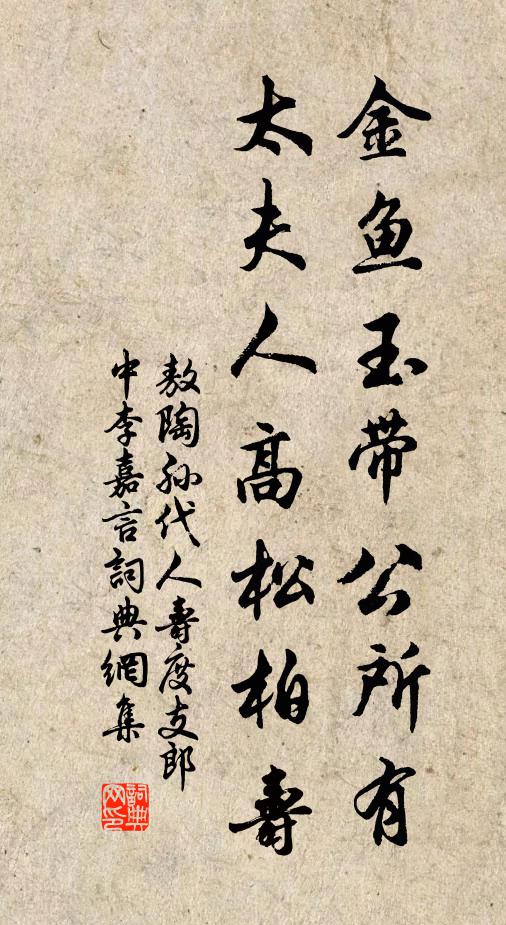 金鱼玉带公所有
太夫人高松柏寿
敖陶孙代人寿度支郎
中李嘉言詞典網集
詞典网印